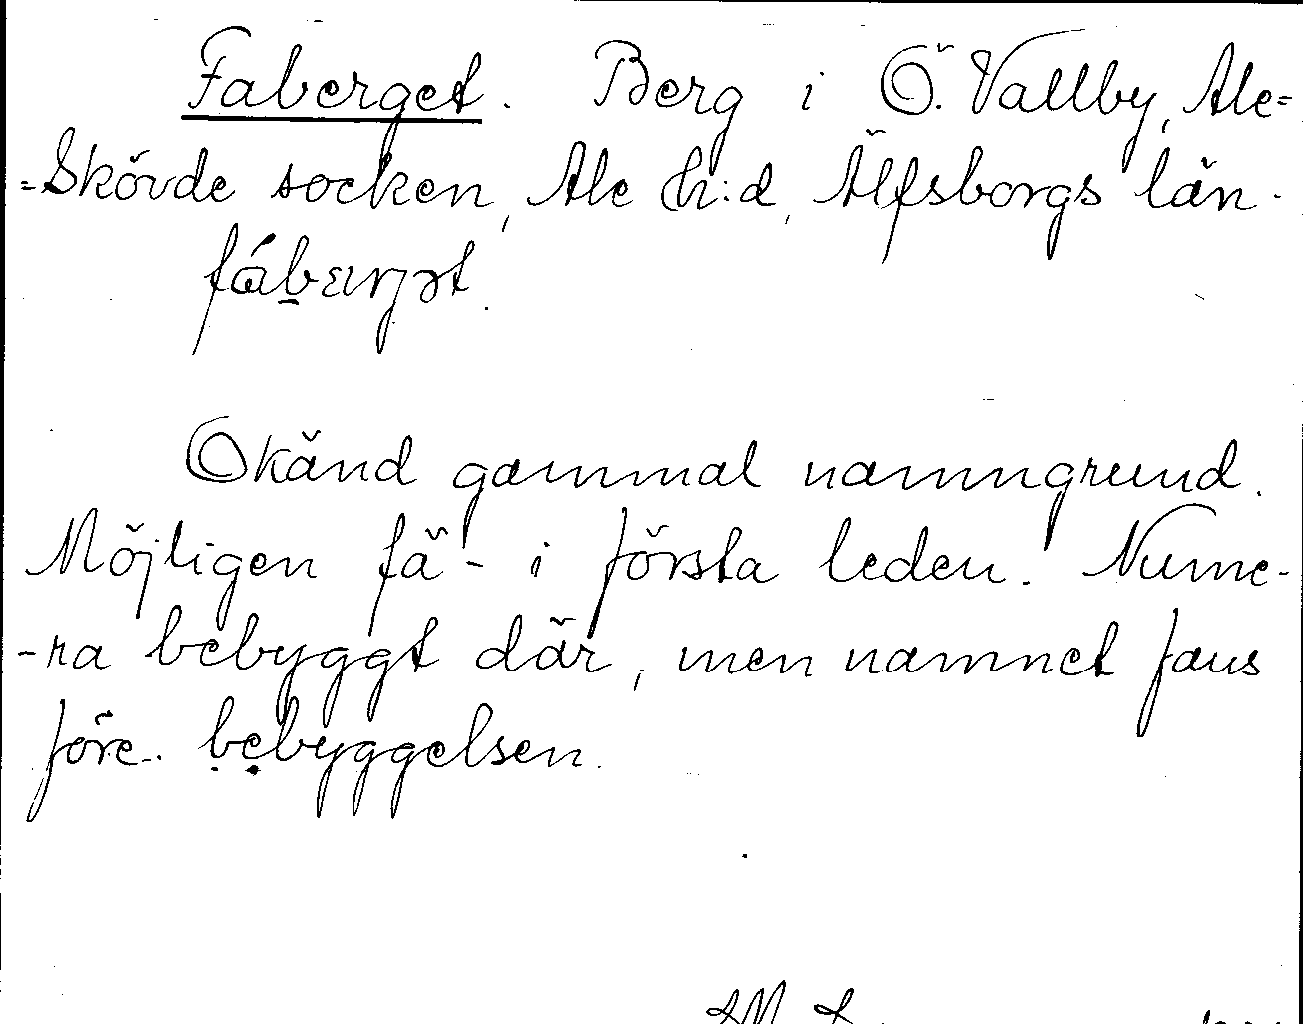 Faberget. Berg i Ö. Vallby, Ale=
=Skövde socken, Ale h:d, Älfsborgs län.
Okänd gammal namngrund.
Möjligen fä- i första leden. Nume-
-ra bebyggt där, men namnet fans
före bebyggelsen.